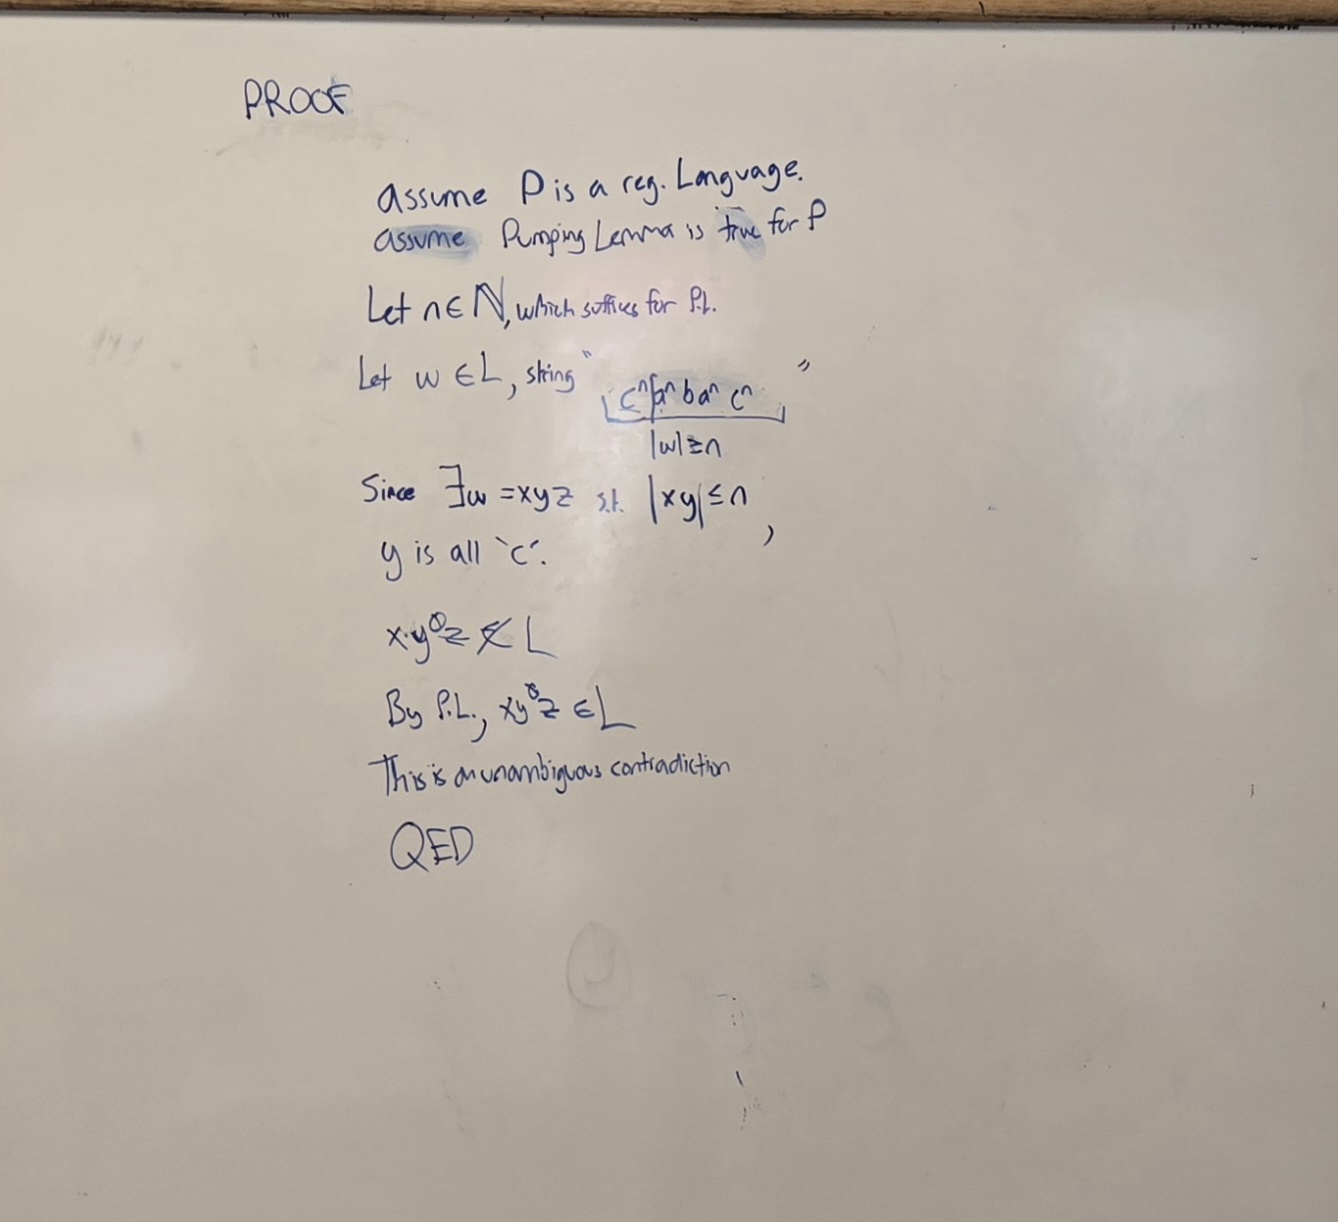 PROOF
Assume P is a reg. Language.
Assume Pumping Lemma is true for P
Let n ∈ ℕ, which suffices for P.L.
Let w ∈ L, string " cⁿaⁿbaⁿcⁿ "
|w| ≥ n
Since ∃w = xyz s.t. |xy| ≤ n,
y is all 'c'.
x·y⁰z ∉ L
By P.L., xy⁰z ∈ L
This is an unambiguous contradiction
QED